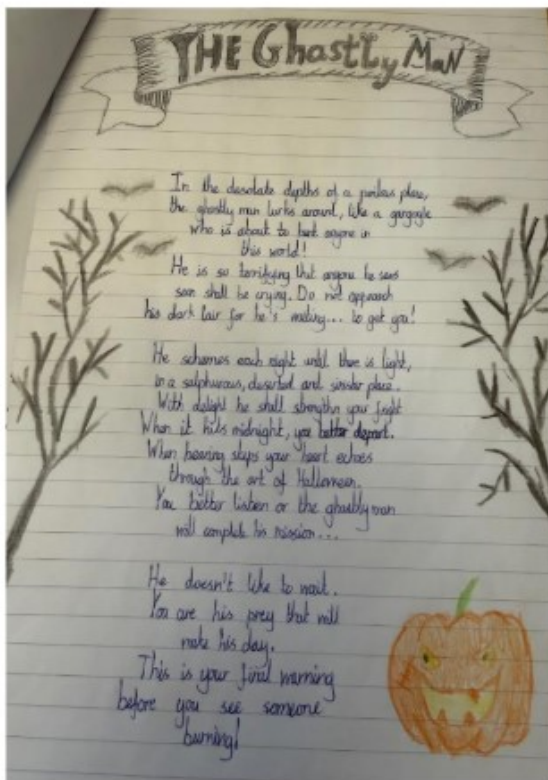 THE Ghastly Man
In the desolate depths of a perilous place,
the ghostly man lurks around, like a gargoyle
who is about to hunt anyone in
this world!
He is so terrifying that anyone he sees
soon shall be crying. Do not approach
his dark lair for he's waiting... to get you!
He schemes each night until there is light,
in a sulphurous, deserted and sinister place.
With delight he shall strengthn your fright
When it hits midnight, you better depart.
When hearing steps your heart echoes
through the art of Halloween.
You better listen or the ghostly man
will complete his mission...
He doesn't like to wait.
You are his prey that will
make his day.
This is your final warning
before you see someone
burning!